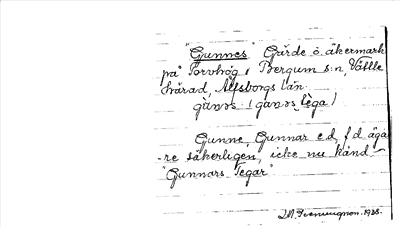 "Gunnes" Gärde o. åkermark
på Torvhög i Bergum s:n, Vättle
härad, Älfsborgs län.
gùnəs (gunəs tèga)
Gunne, Gunnar e.d, f.d äga-
re säkerligen, icke nu känd -
"Gunnars Tegar"
1938.